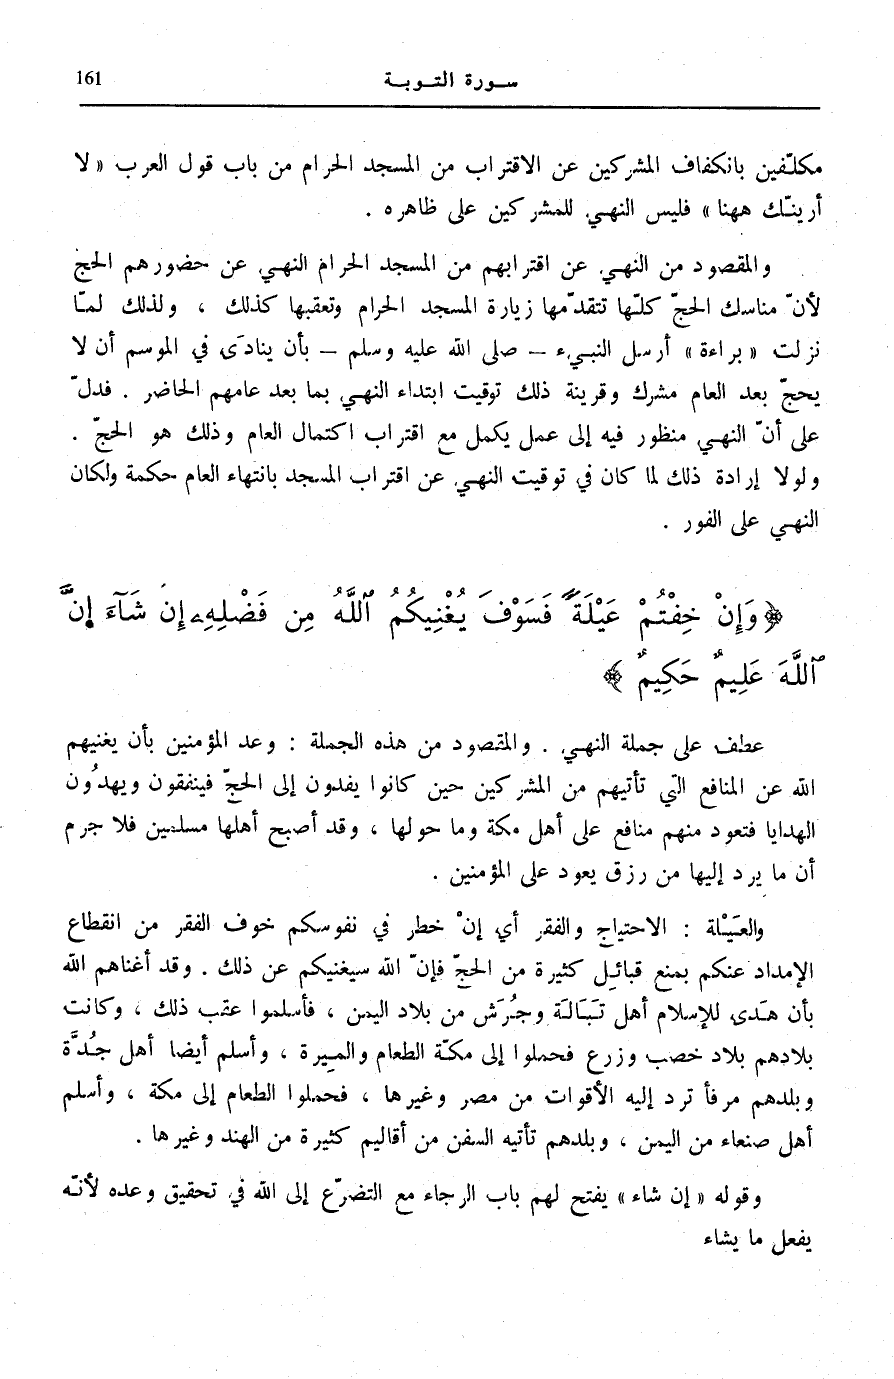 سورة التوبة 161
مكلّفين بانكفاف المشركين عن الاقتراب من المسجد الحرام من باب قول العرب « لا
أرينّك ههنا » فليس النهي للمشركين على ظاهره .
والمقصود من النهي عن اقترابهم من المسجد الحرام النهي عن حضورهم الحج
لأنّ مناسك الحجّ كلّها تتقدّمها زيارة المسجد الحرام وتعقبها كذلك ، ولذلك لمّا
نزلت « براءة » أرسل النبيء – صلى الله عليه وسلم – بأن ينادَى في الموسم أن لا
يحجّ بعد العام مشرك وقرينة ذلك توقيت ابتداء النهي بما بعد عامهم الحاضر . فدلّ
على أنّ النهي منظور فيه إلى عمل يكمل مع اقتراب اكتمال العام وذلك هو الحجّ .
ولولا إرادة ذلك لما كان في توقيت النهي عن اقتراب المسجد بانتهاء العام حكمة ولكان
النهي على الفور .
﴿ وَإِنْ خِفْتُمْ عَيْلَةً فَسَوْفَ يُغْنِيكُمُ ٱللَّهُ مِن فَضْلِهِۦ إِن شَآءَ إِنَّ
ٱللَّهَ عَلِيمٌ حَكِيمٌ ﴾
عطف على جملة النهي . والمقصود من هذه الجملة : وعد المؤمنين بأن يغنيهم
الله عن المنافع التي تأتيهم من المشركين حين كانوا يفدون إلى الحجّ فينفقون ويهدُون
الهدايا فتعود منهم منافع على أهل مكة وما حولها ، وقد أصبح أهلها مسلمين فلا جرم
أن ما يرد إليها من رزق يعود على المؤمنين .
والعَيْلة : الاحتياج والفقر أي إنْ خطر في نفوسكم خوف الفقر من انقطاع
الإمداد عنكم بمنع قبائل كثيرة من الحجّ فإنّ الله سيغنيكم عن ذلك . وقد أغناهم الله
بأن هَدى للإسلام أهل تَبَالَة وجُرَش من بلاد اليمن ، فأسلموا عقب ذلك ، وكانت
بلادهم بلاد خصب وزرع فحملوا إلى مكّة الطعام والميرة ، وأسلم أيضا أهل جُدَّة
وبلدهم مرفأ ترد إليه الأقوات من مصر وغيرها ، فحملوا الطعام إلى مكة ، وأسلم
أهل صنعاء من اليمن ، وبلدهم تأتيه السفن من أقاليم كثيرة من الهند وغيرها .
وقوله « إن شاء » يفتح لهم باب الرجاء مع التضرّع إلى الله في تحقيق وعده لأنّه
يفعل ما يشاء